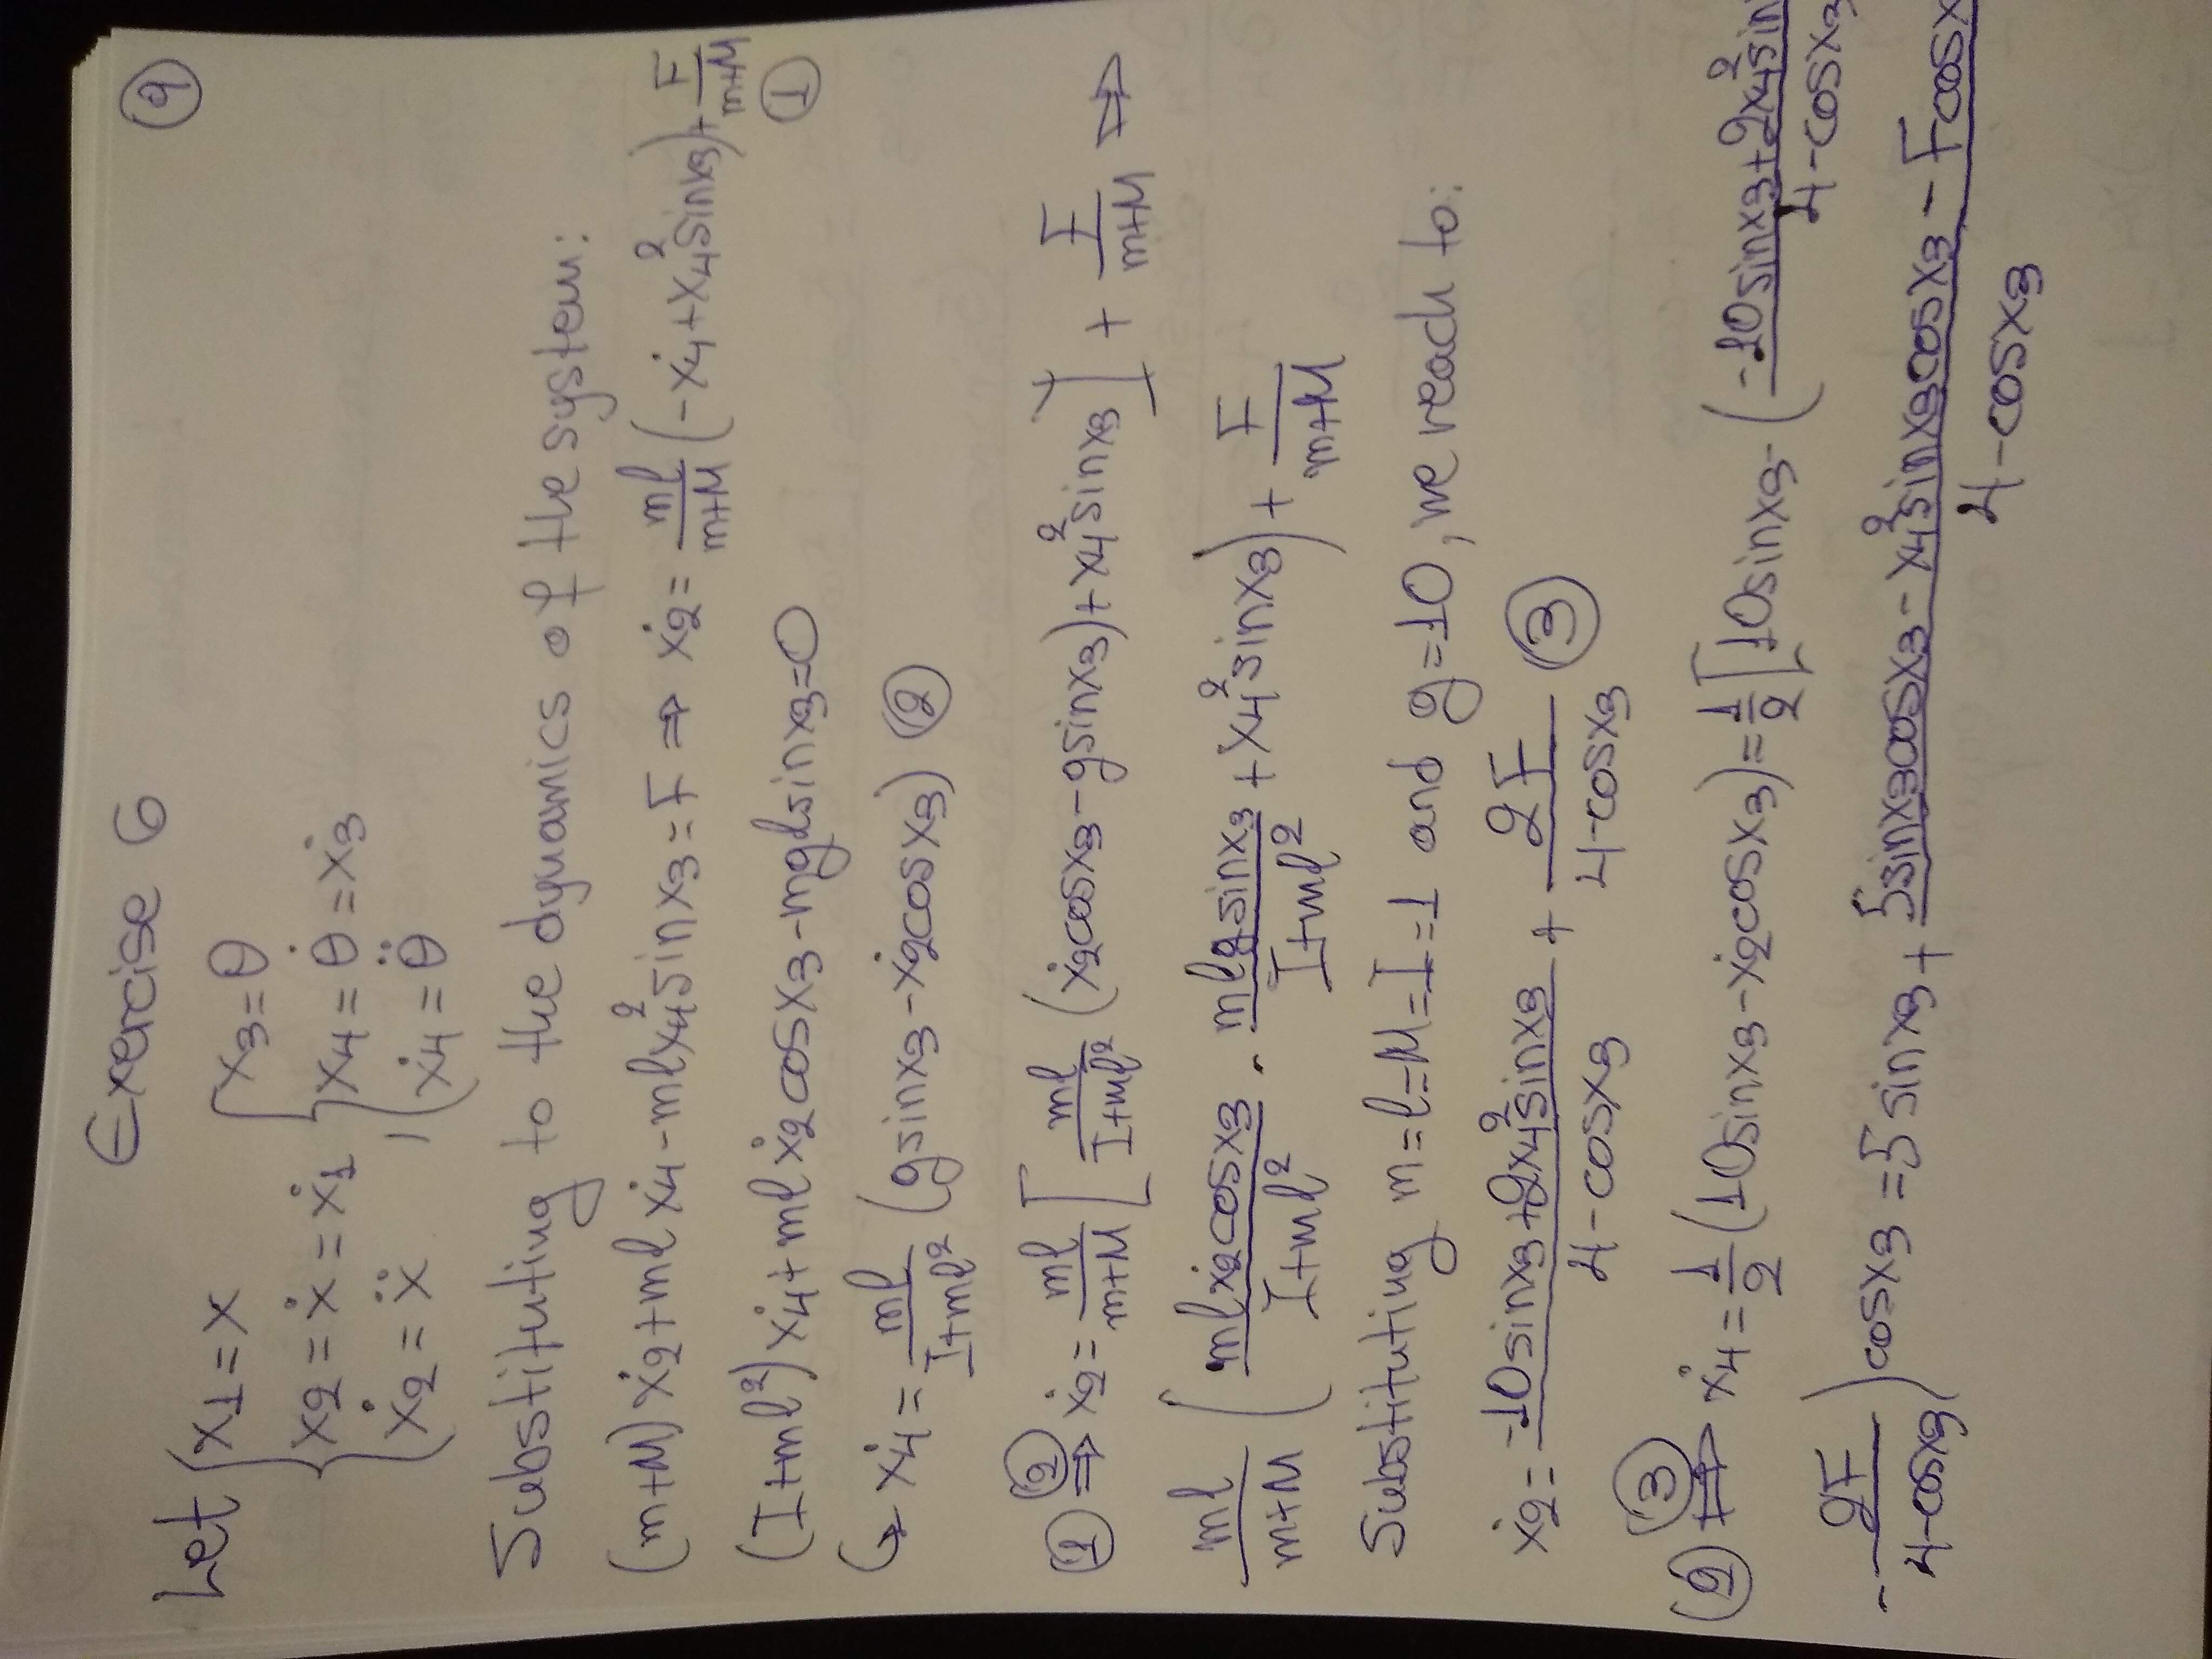 Exercise 6
9
Let { x1 = x { x3 = θ
x2 = ẋ = ẋ1 x4 = θ̇ = ẋ3
ẋ2 = ẍ ẋ4 = θ̈
Substituting to the dynamics of the system:
(m+M)ẋ2 + mlẋ4 - mlx4² sinx3 = F ⇒ ẋ2 = ml/(m+M) (-ẋ4 + x4² sinx3) + F/(m+M) ①
(I+ml²)ẋ4 + mlẋ2cosx3 - mglsinx3 = 0
↪ ẋ4 = ml/(I+ml²) (gsinx3 - ẋ2cosx3) ②
① ②⇒ ẋ2 = ml/(m+M) [ml/(I+ml²) (ẋ2cosx3 - gsinx3) + x4² sinx3)] + F/(m+M) ⇒
ml/(m+M) (mlẋ2cosx3/(I+ml²) - mlgsinx3/(I+ml²) + x4² sinx3) + F/(m+M)
Substituting m=l=M=I=1 and g=10, we reach to:
ẋ2 = (-10sinx3+2x4²sinx3)/(4-cosx3) + 2F/(4-cosx3) ③
② ③⇒ ẋ4 = 1/2 (10sinx3 - ẋ2cosx3) = 1/2 [10sinx3 - (-10sinx3+2x4²sin/(4-cosx3
- 2F/(4-cosx3) ) cosx3 = 5sinx3 + (5sinx3cosx3 - x4²sinx3cosx3 - Fcosx)/(4-cosx3)